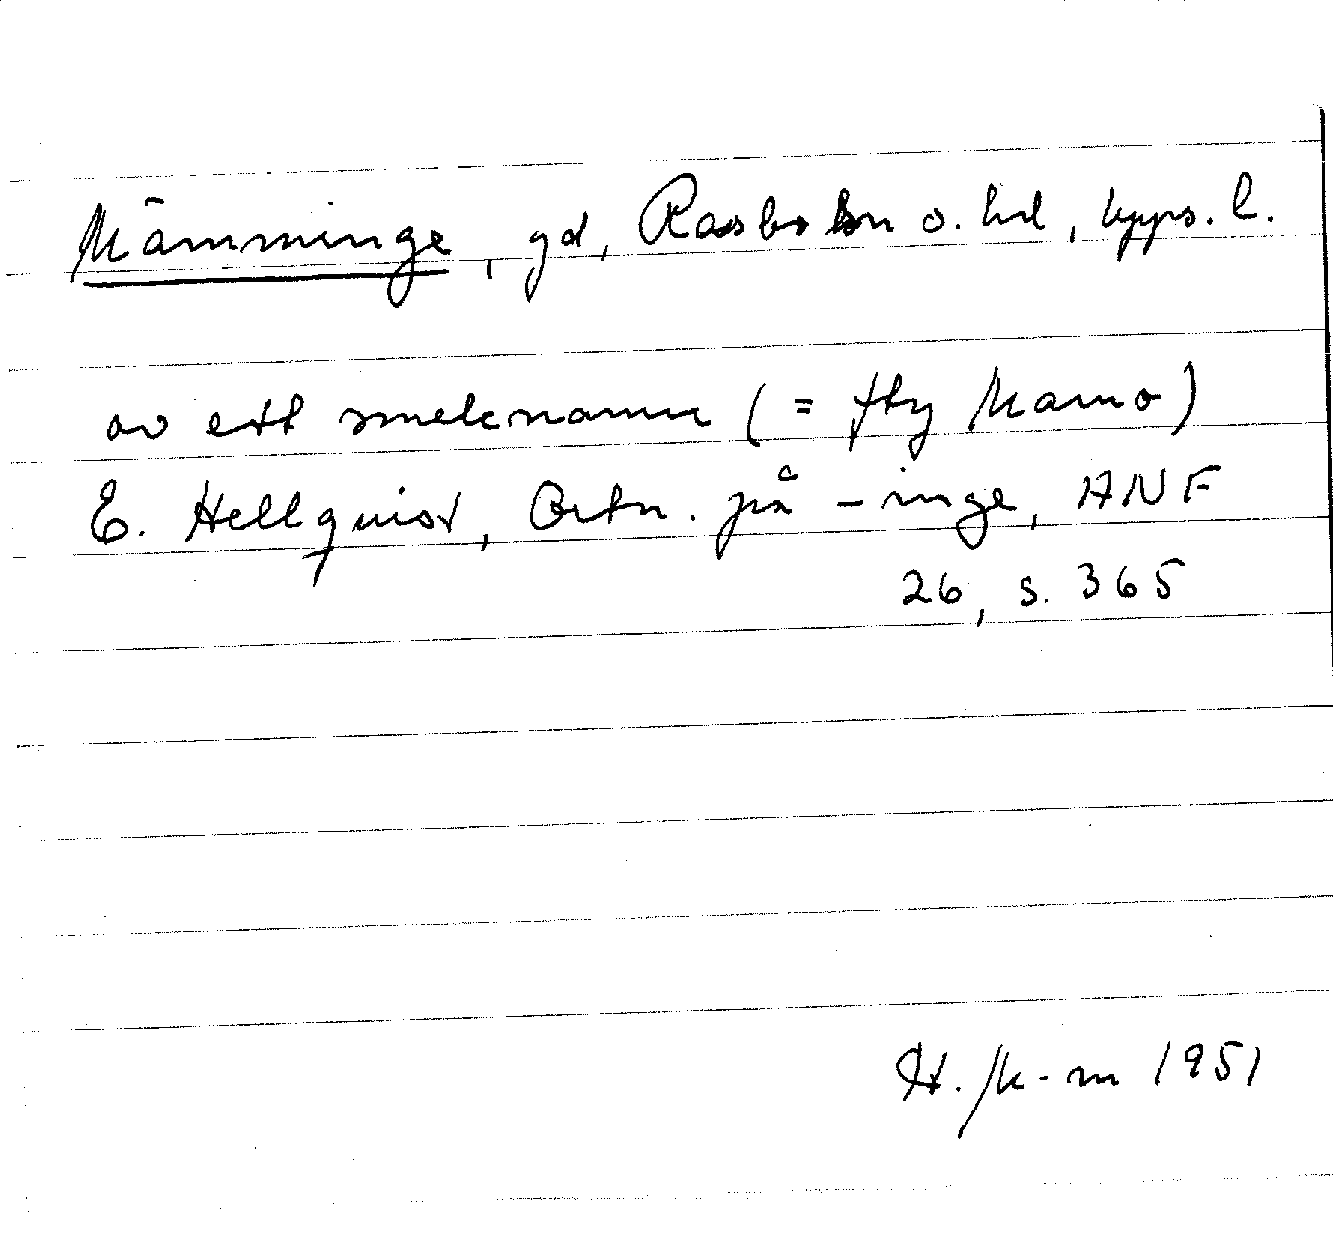 Mämminge, gd, Rasbo sn o. hd, Upps. l.
av ett smeknamn (= fty Mamo)
E. Hellquist, Ortn. på -inge, ANF
26, s. 365
H. 1951